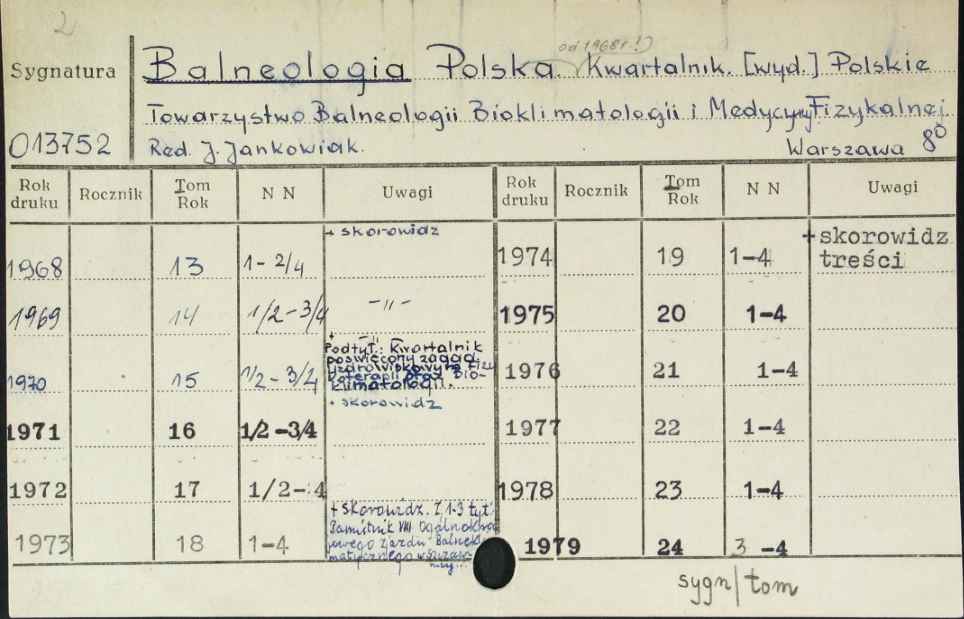 2
od 1968r!)
Sygnatura
Balneologia Polska. Kwartalnik. [wyd.] Polskie
Towarzystwo Balneologii Bioklimatologii i Medycyny Fizykalnej.
013752 Red. J. Jankowiak. Warszawa 8⁰
Rok druku Rocznik Tom Rok N N Uwagi Rok druku Rocznik Tom Rok N N Uwagi
1968 13 1-2/4 + skorowidz
1969 14 1/2-3/4 -"-
1970 15 1/2-3/4 + -"-
Podtyt.: Kwartalnik
poświęcony zagad.
uzdrowiskowym Fizy
koterapii oraz Bio-
klimatologii.
1971 16 1/2-3/4 + skorowidz
1972 17 1/2-4
1973 18 1-4 + skorowidz. Z 1-3 tyt:
Pamiętnik VIII Ogólnokra
jowego Zjazdu Balneo
matycznego w
1974 19 1-4 + skorowidz
treści
1975 20 1-4
1976 21 1-4
1977 22 1-4
1978 23 1-4
1979 24 3-4
sygn/tom